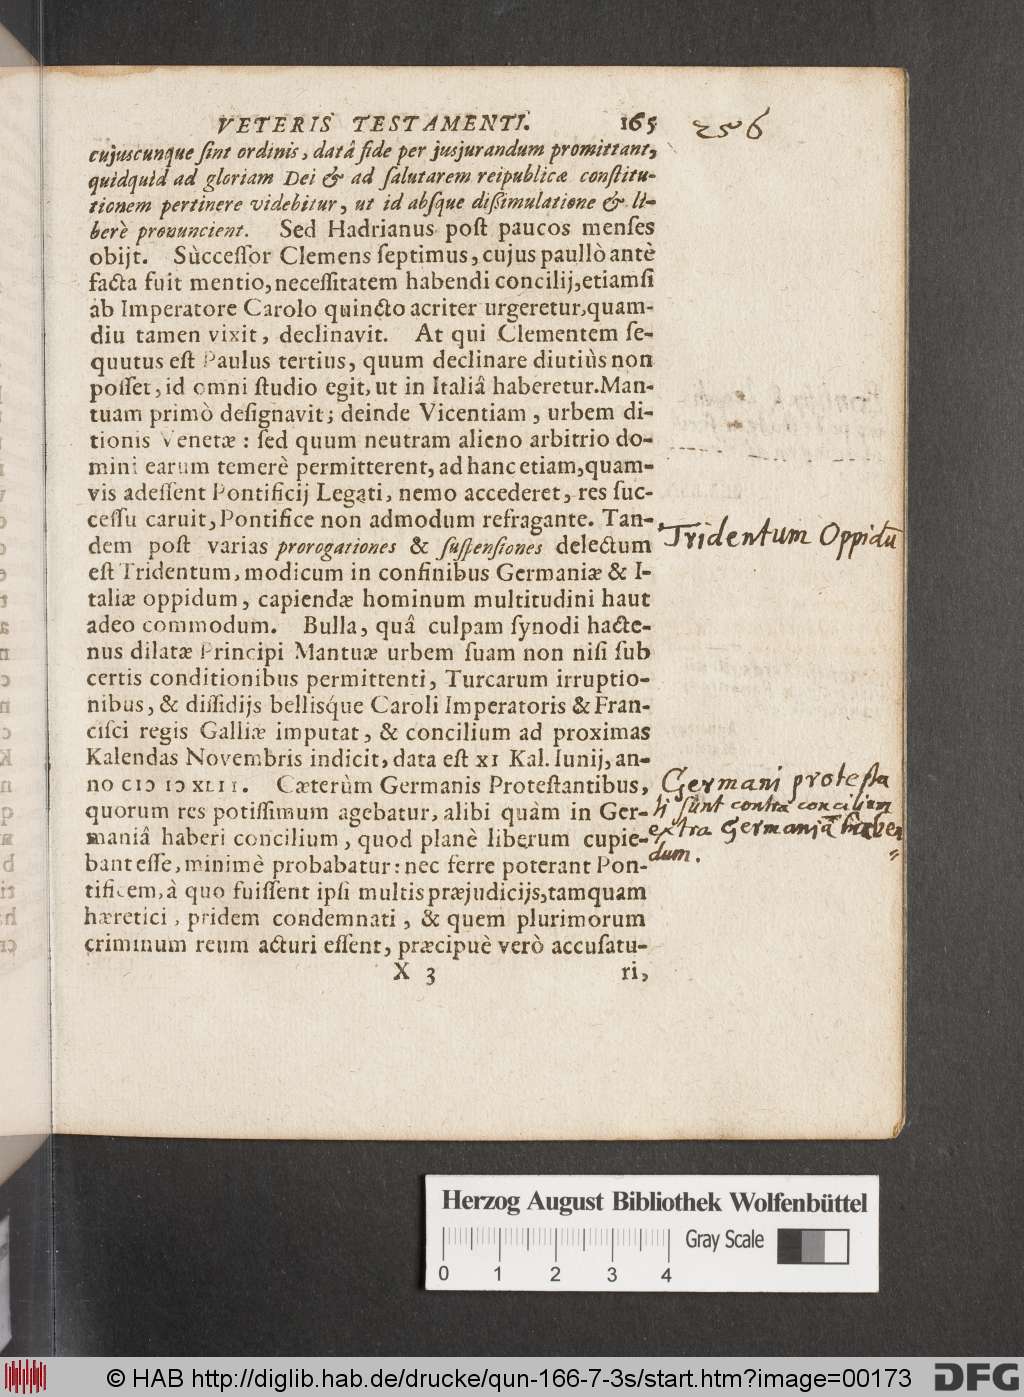 VETERIS TESTAMENTI. 165
256
cujuscunque ſint ordinis, datâ fide per jusjurandum promittant,
quidquid ad gloriam Dei & ad ſalutarem reipublicæ conſtitu-
tionem pertinere videbitur, ut id abſque diſsimulatione & li-
berè pronuncient. Sed Hadrianus poſt paucos menſes
obijt. Sùcceſſor Clemens ſeptimus, cujus paullò antè
facta fuit mentio, neceſſitatem habendi concilij, etiamſi
ab Imperatore Carolo quincto acriter urgeretur, quam-
diu tamen vixit, declinavit. At qui Clementem ſe-
quutus eſt Paulus tertius, quum declinare diutiùs non
poſſet, id omni ſtudio egit, ut in Italiâ haberetur. Man-
tuam primò deſignavit; deinde Vicentiam, urbem di-
tionis Venetæ: ſed quum neutram alieno arbitrio do-
mini earum temerè permitterent, ad hanc etiam, quam-
vis adeſſent Pontificij Legati, nemo accederet, res ſuc-
ceſſu caruit, Pontifice non admodum refragante. Tan-
dem poſt varias prorogationes & ſuſpenſiones delectum
eſt Tridentum, modicum in confinibus Germaniæ & I-
taliæ oppidum, capiendæ hominum multitudini haut
adeo commodum. Bulla, quâ culpam ſynodi hacte-
nus dilatæ Principi Mantuæ urbem ſuam non niſi ſub
certis conditionibus permittenti, Turcarum irruptio-
nibus, & diſſidijs bellisq́ue Caroli Imperatoris & Fran-
ciſci regis Galliæ imputat, & concilium ad proximas
Kalendas Novembris indicit, data eſt XI Kal. Iunij, an-
no CIↃ IↃ XLII. Cæterùm Germanis Proteſtantibus,
quorum res potiſſimum agebatur, alibi quàm in Ger-
maniâ haberi concilium, quod planè liberum cupie-
bant eſſe, minimè probabatur: nec ferre poterant Pon-
tificem, à quo fuiſſent ipſi multis præjudicijs, tamquam
hæretici, pridem condemnati, & quem plurimorum
criminum reum acturi eſſent, præcipuè verò accuſatu-
X 3 ri,
Tridentum Oppidū
Germani proteſta
ti ſunt contra concilium
extra Germaniā haben
dum.
Herzog August Bibliothek Wolfenbüttel
Gray Scale
0 1 2 3 4
© HAB http://diglib.hab.de/drucke/qun-166-7-3s/start.htm?image=00173
DFG